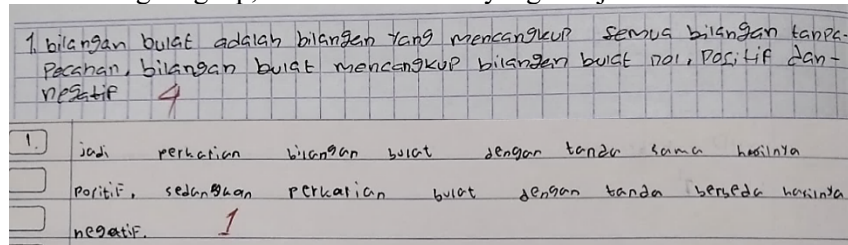 1. bilangan bulat adalah bilangan yang mencangkup semua bilangan tanpa-
Pecahan, bilangan bulat mencangkup bilangan bulat nol, Positif dan-
negatif 4
1. jadi perkatian bilangan bulat dengan tanda sama hasilnya
Positif, sedangkan perkalian bulat dengan tanda berbeda hasilnya
negatif. 1